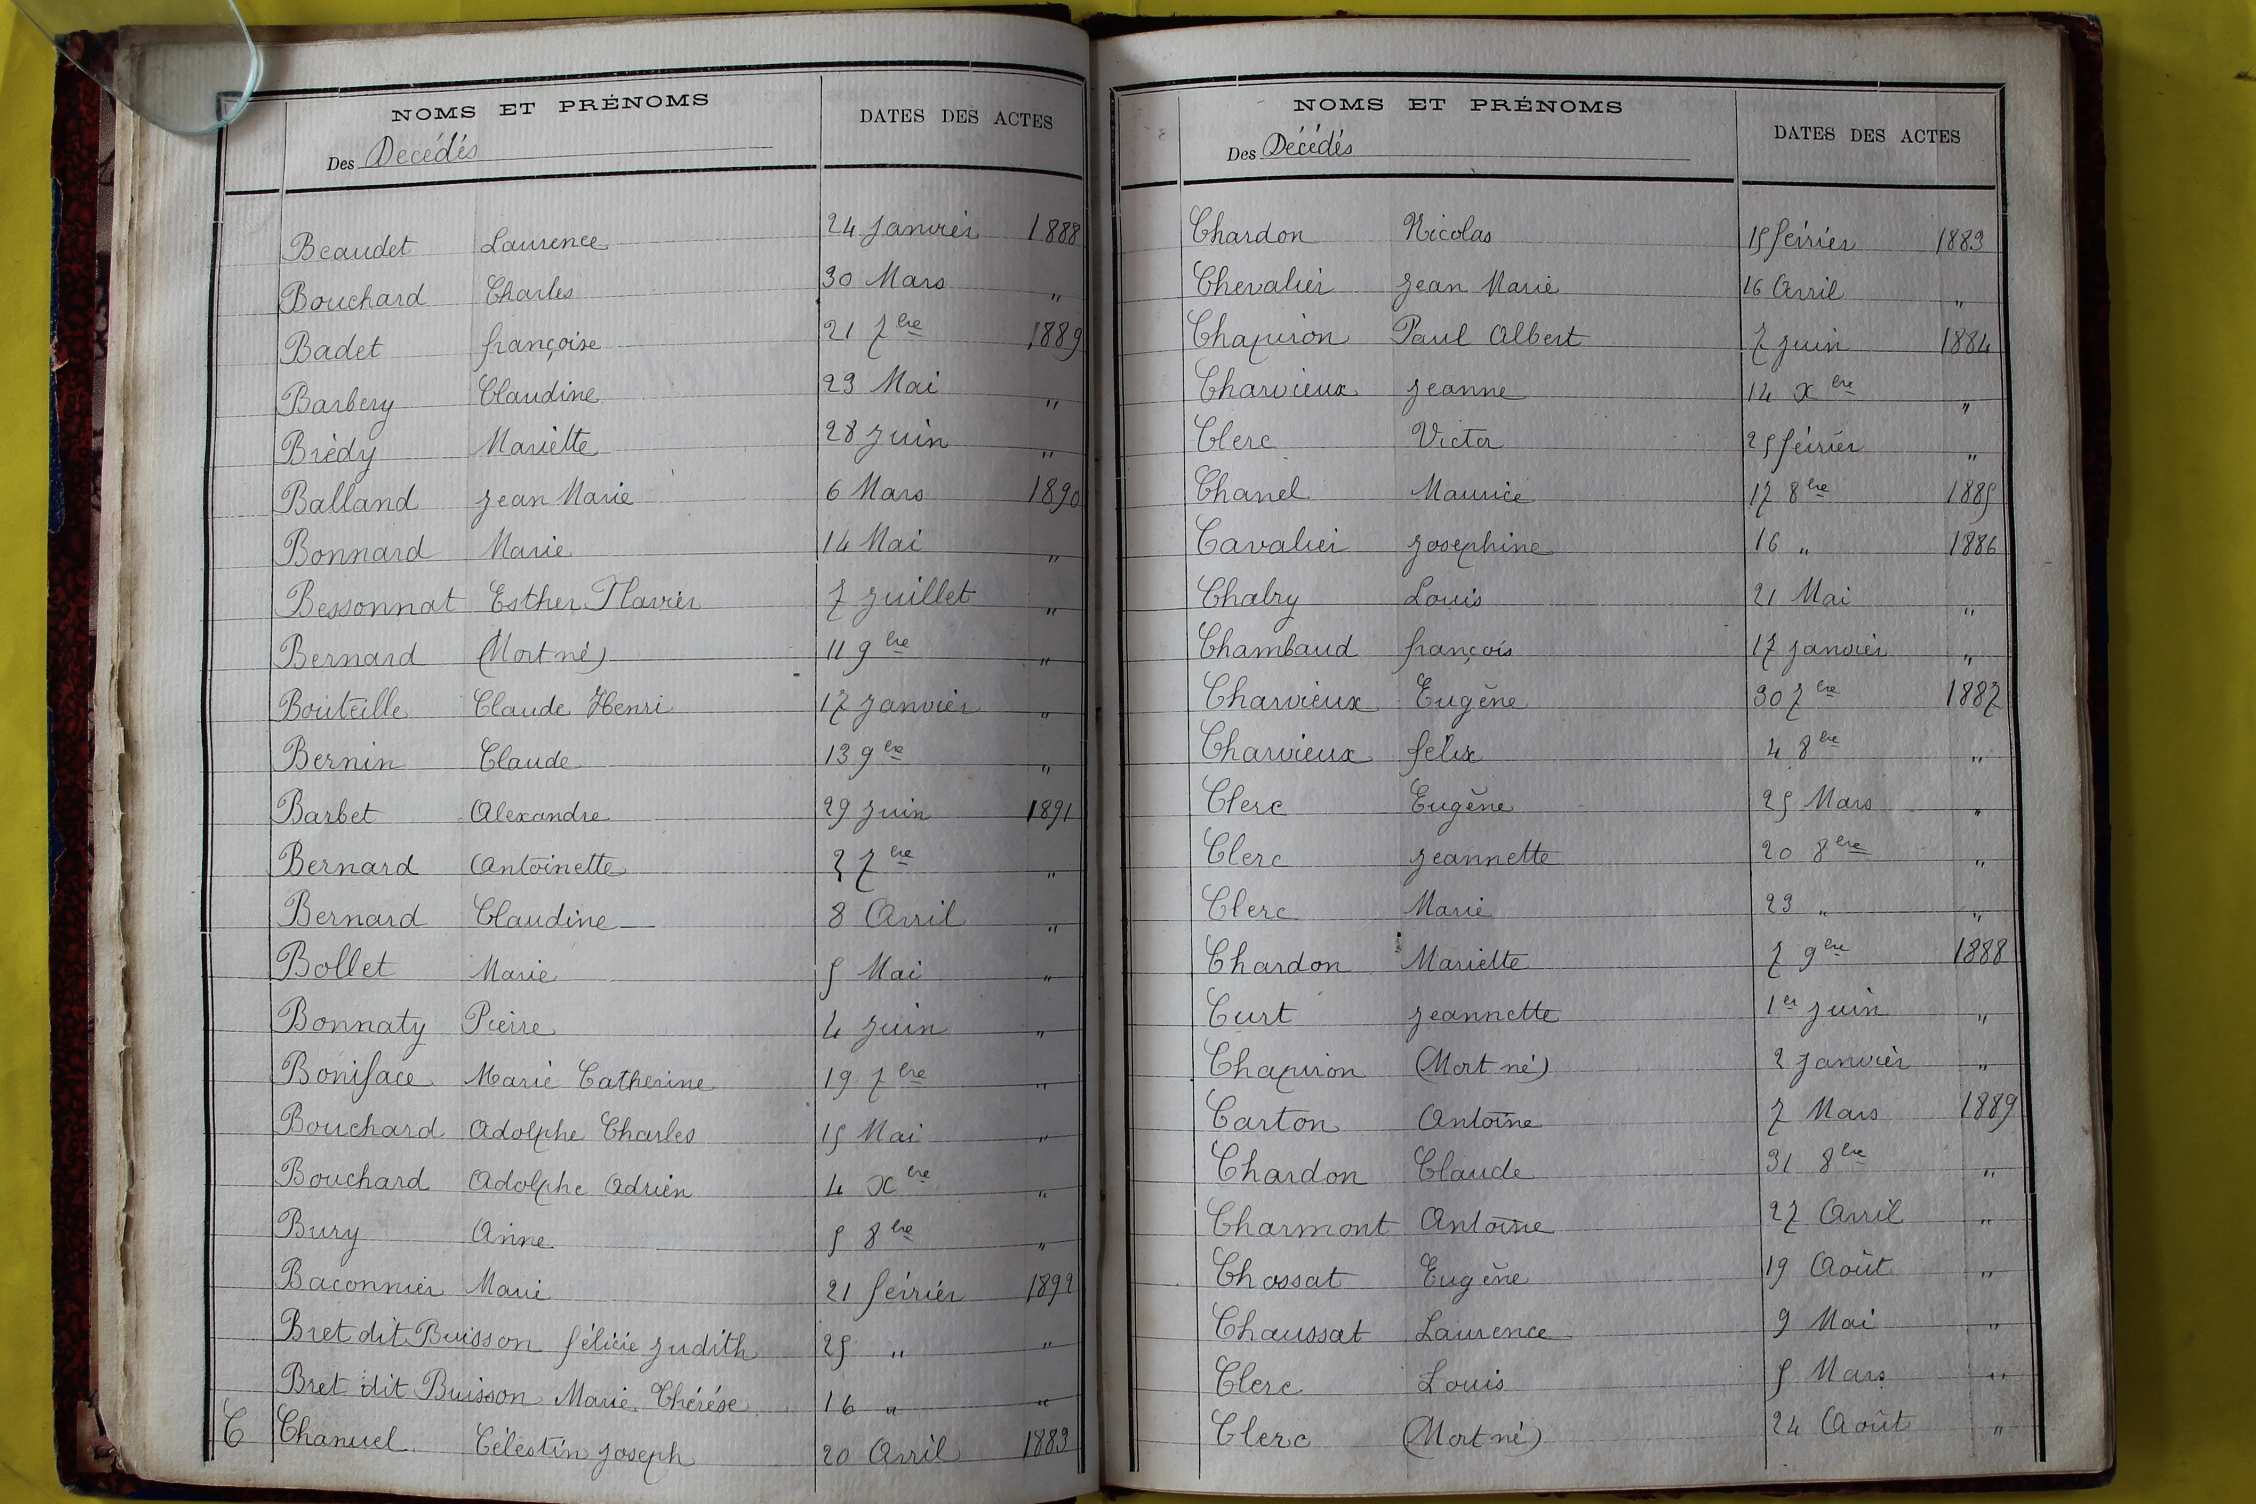 NOMS ET PRÉNOMS DATES DES ACTES
Des Décédés
Beaudet Laurence 24 Janvier 1888
Bouchard Charles 30 Mars "
Badet françoise 21 7bre 1889
Barbery Claudine 23 Mai "
Brédy Mariette 28 Juin "
Balland Jean Marie 6 Mars 1890
Bonnard Marie 14 Mai "
Bessonnat Esther Flavier 7 Juillet "
Bernard (Mort né) 11 9bre "
Bouteille Claude Henri 17 Janvier "
Bernin Claude 13 9bre "
Barbet Alexandre 29 Juin 1891
Bernard Antoinette 2 7bre "
Bernard Claudine 8 Avril "
Bollet Marie 5 Mai "
Bonnaty Pierre 4 Juin "
Boniface Marie Catherine 19 7bre "
Bouchard Adolphe Charles 15 Mai "
Bouchard Adolphe Adrien 4 Xbre "
Bury Anne 5 8bre "
Baconnier Marie 21 février 1892
Bret dit Buisson félicie Judith 25 " "
Bret dit Buisson Marie Thérése 16 " "
C Chanuel Célestin Joseph 20 Avril 1883
NOMS ET PRÉNOMS DATES DES ACTES
Des Décédés
Chardon Nicolas 15 février 1883
Chevalier Jean Marie 16 Avril "
Chapiron Paul Albert 7 Juin 1884
Charvieux Jeanne 14 Xbre "
Clerc Victor 25 février "
Chanel Maurice 17 8bre 1885
Cavalier Josephine 16 " 1886
Chabry Louis 21 Mai "
Chambaud françois 17 Janvier "
Charvieux Eugène 30 7bre 1887
Charvieux félix 4 8bre "
Clerc Eugène 25 Mars "
Clerc Jeannette 20 8bre "
Clerc Marie 23 " "
Chardon Mariette 7 9bre 1888
Curt Jeannette 1er Juin "
Chapiron (Mort né) 2 Janvier "
Carton Antoine 7 Mars 1889
Chardon Claude 31 8bre "
Charmont Antoine 27 Avril "
Chossat Eugène 19 Août "
Chaussat Laurence 9 Mai "
Clerc Louis 5 Mars "
Clerc (Mort né) 24 Août "